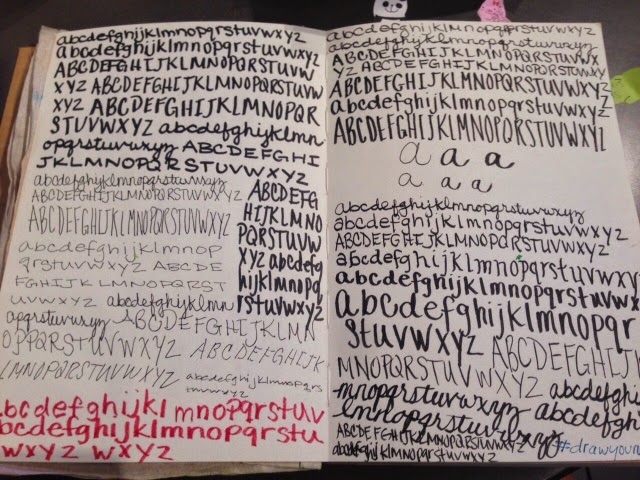 abcdefghijklmnopqrstuvwxyz
abcdefghijklmnopqrstuvwxyz
ABCDEFGHIJKLMNOPQRSTUVW
XYZ ABCDEFGHIJKLMNOPQRSTUVW
XYZ ABCDEFGHIJKLMNOPQR
STUVWXYZ abcdefghijklmn
opqrstuvwxyz ABCDEFGHI
JKLMNOPQRSTUVWXYZ
abcdefghijklmnopqrstuvwxyz
ABCDEFGHIJKLMNOPQRSTUVWXYZ
ABCDEFGHIJKLMNOPQRSTUVWXYZ
abcdefghijklmnop
qrstuvwxyz ABCDE
FGHIJKLMNOPQRST
UVWXYZ abcdefghijklmn
opqrstuvwxyz ABCDEFGHIJKLMN
OPQRSTUVWXYZ ABCDEFGHIJK
LMNOPQRSTUVWXYZ abcdefghijklmnopqrs
tuvwxyz
ABCDEFG
HIJKLMNO
PQRSTUVW
XYZ abcdefg
hijklmnopq
rstuvwxyz
bcdefghijklmnopqrstuv
bcdefghijklmnopqrstu
wxyz wxyz
abcdefghijklmnopqrstuvwxyz
abcdefghijklmnopqrstuvwxyz
ABCDEFGHIJKLMNOPQRSTUVWX
YZ ABCDEFGHIJKLMNOPQRSTUVWXYZ
ABCDEFGHIJKLMNOPQRSTUVWXYZ
abcdefghijklmnopqrstuvwxyz
ABCDEFGHIJKLMNOPQRSTUVWXYZ
a a a
a a a
abcdefghijklmnopqrstuvwxyz
abcdefghijklmnopqrstuvwxyz
ABCDEFGHIJKLMNOPQRSTUVWXYZ
abcdefghijklmnopqrstuvwxy
abcdefghijklmnopqrstuvwx
abcdefghijklmnopqr
stuvwxyz ABCDEFGHIJKL
MNOPQRSTUVWXYZ abcdefghijkl
mnopqrstuvwxyz abcdefgh
lmnopqrstuvwxyz
ABCDEFGHIJKLMNOPQRSTUVWXYZ #drawyour
abcdefghijklmnopqrstuvwxyz